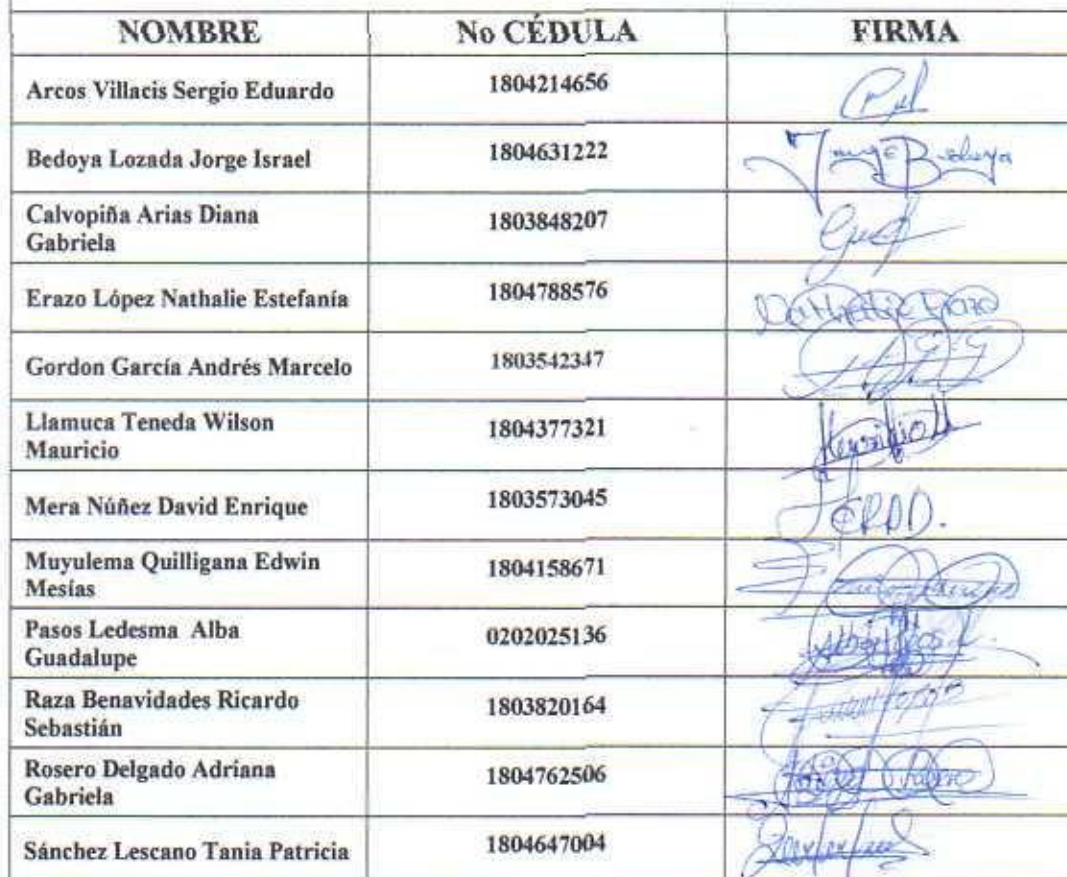 NOMBRE No CÉDULA FIRMA
Arcos Villacis Sergio Eduardo 1804214656
Bedoya Lozada Jorge Israel 1804631222 Jorge Bedoya
Calvopiña Arias Diana
Gabriela 1803848207
Erazo López Nathalie Estefanía 1804788576 Nathalie Erazo
Gordon García Andrés Marcelo 1803542347
Llamuca Teneda Wilson
Mauricio 1804377321
Mera Núñez David Enrique 1803573045
Muyulema Quilligana Edwin
Mesías 1804158671
Pasos Ledesma Alba
Guadalupe 0202025136
Raza Benavidades Ricardo
Sebastián 1803820164
Rosero Delgado Adriana
Gabriela 1804762506
Sánchez Lescano Tania Patricia 1804647004